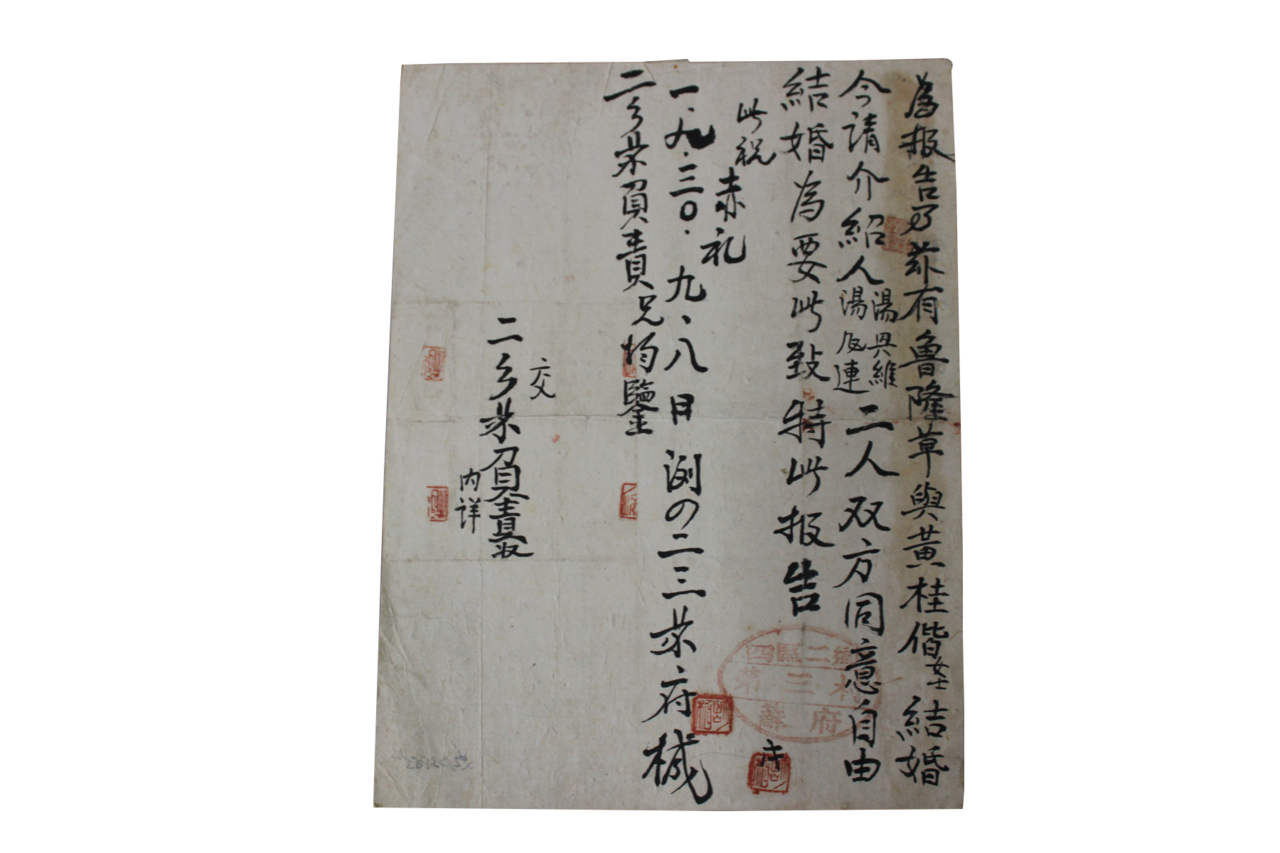 為报告乃苏有魯隆草與黃桂偕女士結婚
今請介紹人湯興維湯尼連二人双方同意自由
結婚為要此致特此报告
此祝
赤礼
一九三〇.九.八日 渕の二三苏府械
二乡苏負責兄均鑒
交
二乡苏負責最
内详
四區二鄉
第三村
蘇府